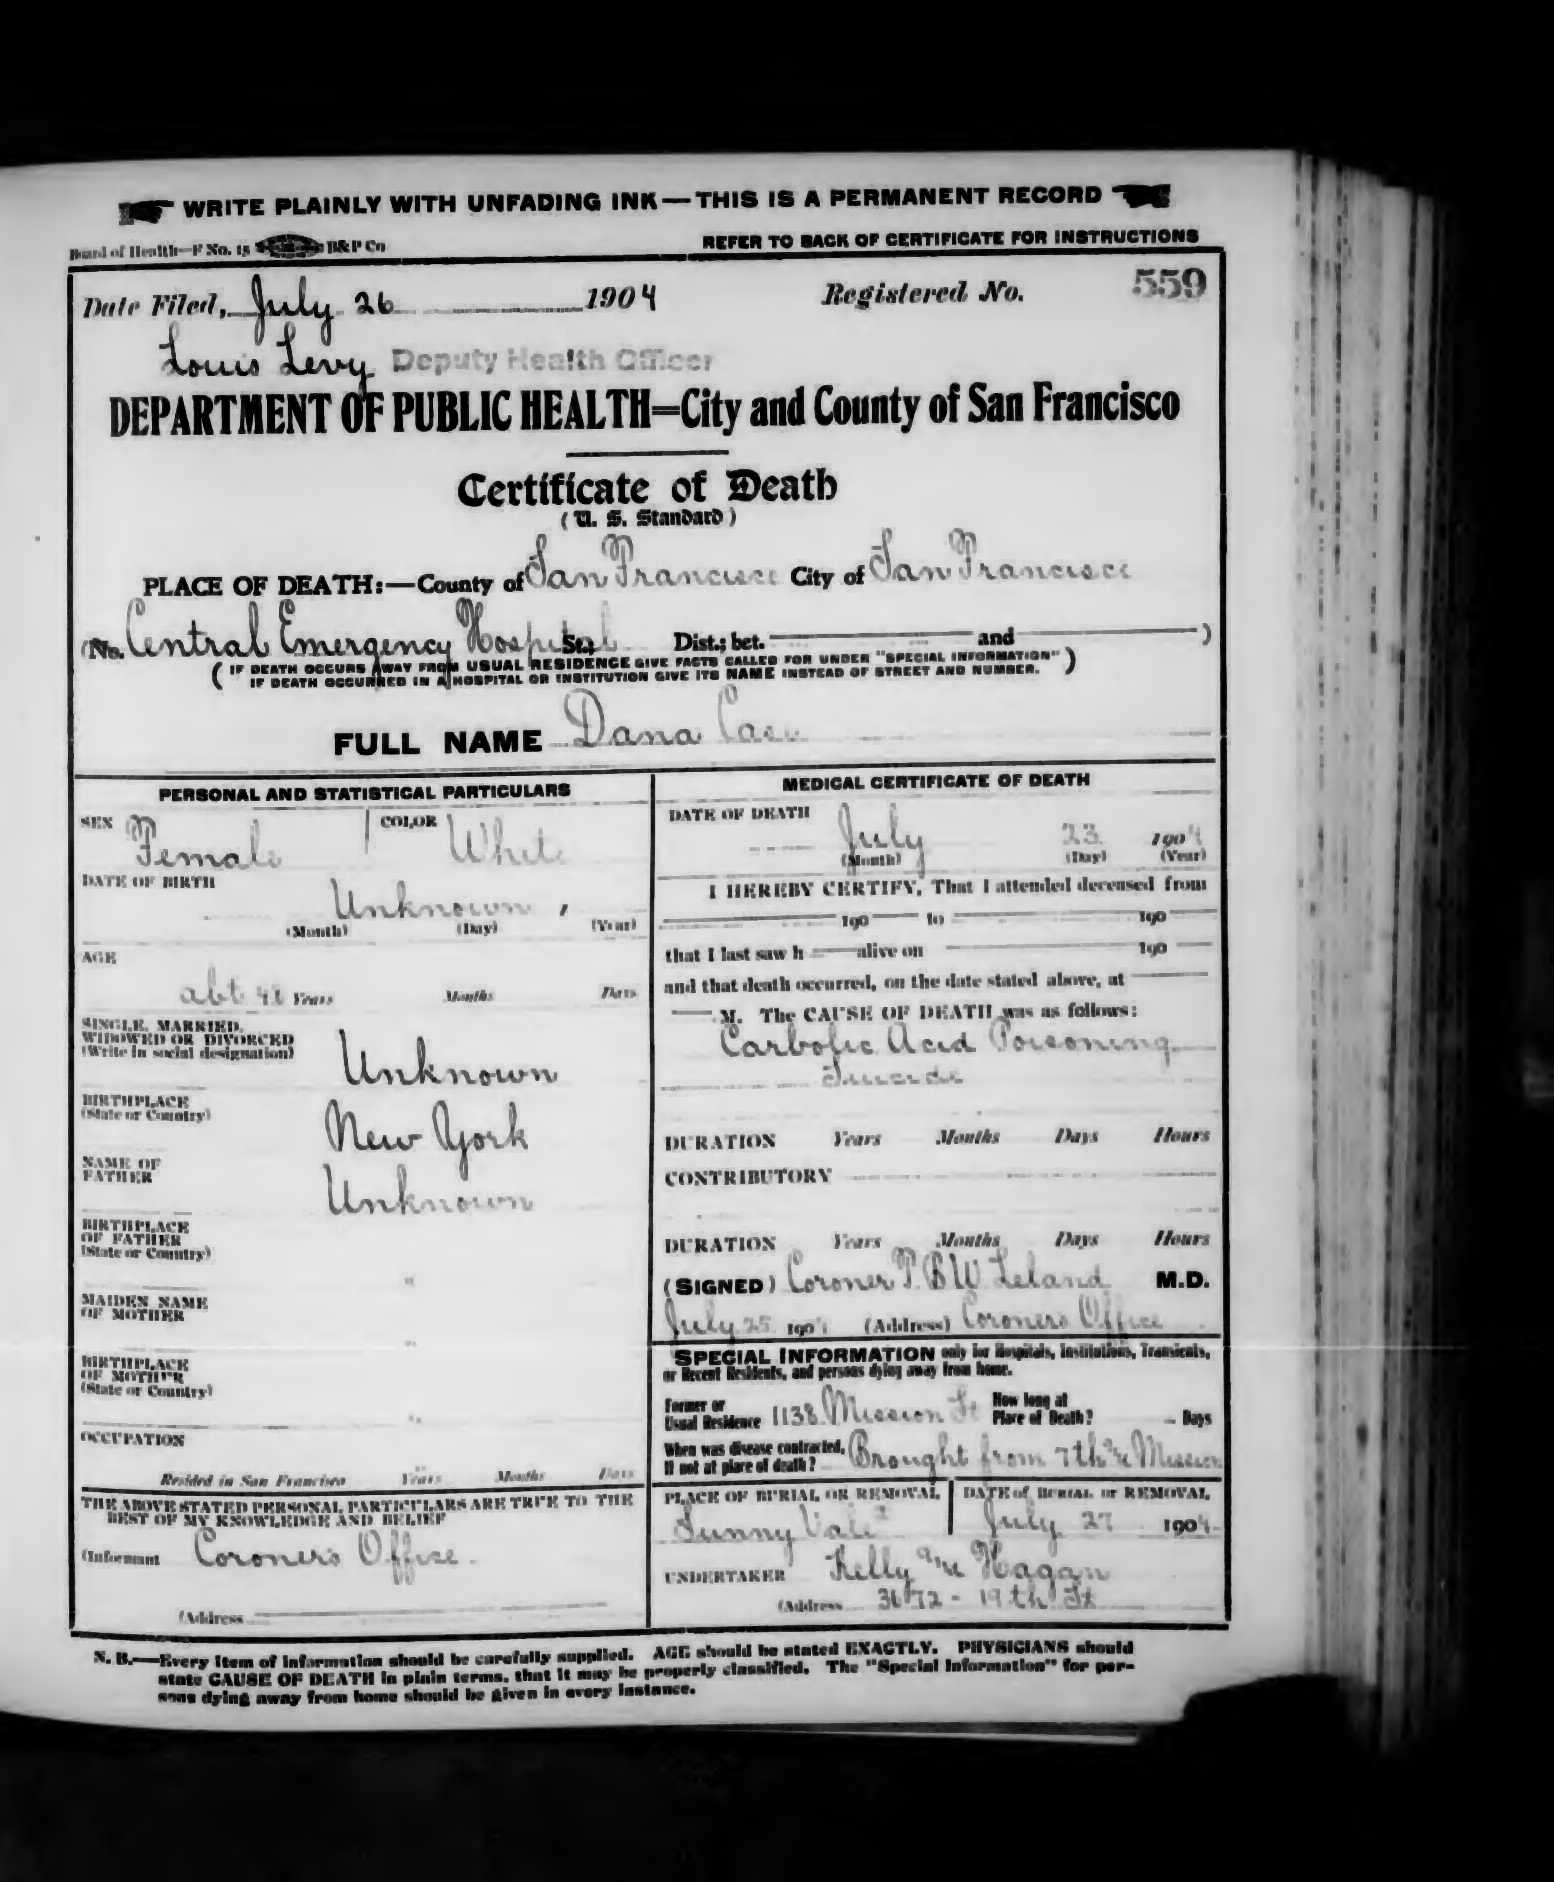 WRITE PLAINLY WITH UNFADING INK—THIS IS A PERMANENT RECORD
Board of Health—F No. 15 B&P Co REFER TO BACK OF CERTIFICATE FOR INSTRUCTIONS
Date Filed, July 26 1904 Registered No. 559
Louis Levy Deputy Health Officer
DEPARTMENT OF PUBLIC HEALTH=City and County of San Francisco
Certificate of Death
(U. S. Standard)
PLACE OF DEATH:—County of San Francisco City of San Francisco
(No. Central Emergency Hospital St.; Dist.; bet. and )
( IF DEATH OCCURS AWAY FROM USUAL RESIDENCE GIVE FACTS CALLED FOR UNDER "SPECIAL INFORMATION" )
IF DEATH OCCURRED IN A HOSPITAL OR INSTITUTION GIVE ITS NAME INSTEAD OF STREET AND NUMBER.
FULL NAME Dana
PERSONAL AND STATISTICAL PARTICULARS
SEX Female COLOR White
DATE OF BIRTH
Unknown
(Month) (Day) (Year)
AGE
abt Years Months Days
SINGLE, MARRIED,
WIDOWED OR DIVORCED
(Write in social designation)
Unknown
BIRTHPLACE
(State or Country)
New York
NAME OF
FATHER
Unknown
BIRTHPLACE
OF FATHER
(State or Country)
"
MAIDEN NAME
OF MOTHER
"
BIRTHPLACE
OF MOTHER
(State or Country)
"
OCCUPATION
"
Resided in San Francisco Years Months Days
THE ABOVE STATED PERSONAL PARTICULARS ARE TRUE TO THE
BEST OF MY KNOWLEDGE AND BELIEF
(Informant Coroner's Office
(Address
MEDICAL CERTIFICATE OF DEATH
DATE OF DEATH
July 23 1904
(Month) (Day) (Year)
I HEREBY CERTIFY, That I attended deceased from
190 to 190
that I last saw h alive on 190
and that death occurred, on the date stated above, at
M. The CAUSE OF DEATH was as follows:
Carbolic Acid Poisoning
Suicide
DURATION Years Months Days Hours
CONTRIBUTORY
DURATION Years Months Days Hours
(SIGNED) Coroner T. B W. Leland M.D.
July 25 1904 (Address) Coroner's Office
SPECIAL INFORMATION only for Hospitals, Institutions, Transients,
or Recent Residents, and persons dying away from home.
Former or
Usual Residence 1138 Mission St
How long at
Place of Death? Days
When was disease contracted,
If not at place of death? Brought from 7th and Mission
PLACE OF BURIAL OR REMOVAL
Sunny Vale
DATE of BURIAL or REMOVAL
July 27 1904
UNDERTAKER Kelly and Hagan
(Address 3672 - 19th St
N. B.—Every item of information should be carefully supplied. AGE should be stated EXACTLY. PHYSICIANS should
state CAUSE OF DEATH in plain terms, that it may be properly classified. The "Special Information" for per-
sons dying away from home should be given in every instance.